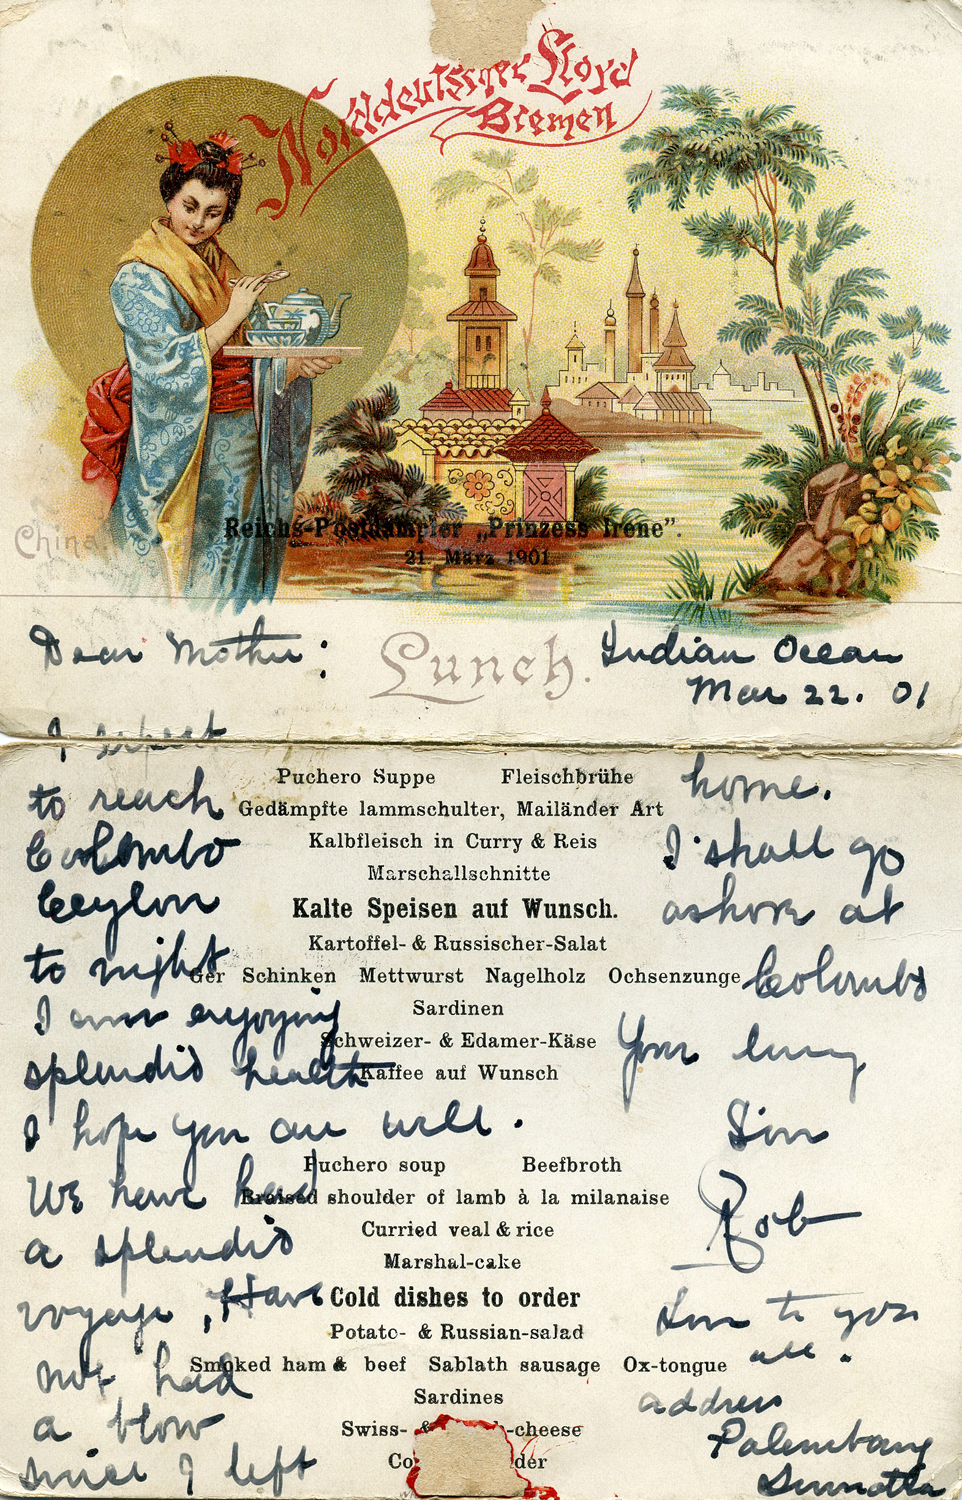 Norddeutscher Lloyd
Bremen
China.
Reichs-Postdampfer „Prinzess Irene".
21. März 1901
Dear Mother:
Lunch.
Indian Ocean
Mar 22. 01
I expect
to reach
Colombo
Ceylon
to night
I am enjoying
splendid health
I hope you are well.
We have had
a splendid
voyage, Have
not had
a blow
since I left
home.
I shall go
ashore at
Colombo
Your loving
Son
Rob
Love to you
all.
address
Palembang
Sumatra
Puchero Suppe Fleischbrühe
Gedämpfte lammschulter, Mailänder Art
Kalbfleisch in Curry & Reis
Marschallschnitte
Kalte Speisen auf Wunsch.
Kartoffel- & Russischer-Salat
Ger Schinken Mettwurst Nagelholz Ochsenzunge
Sardinen
Schweizer- & Edamer-Käse
Kaffee auf Wunsch
Puchero soup Beefbroth
Braised shoulder of lamb à la milanaise
Curried veal & rice
Marshal-cake
Cold dishes to order
Potato- & Russian-salad
Smoked ham & beef Sablath sausage Ox-tongue
Sardines
Swiss- & -cheese